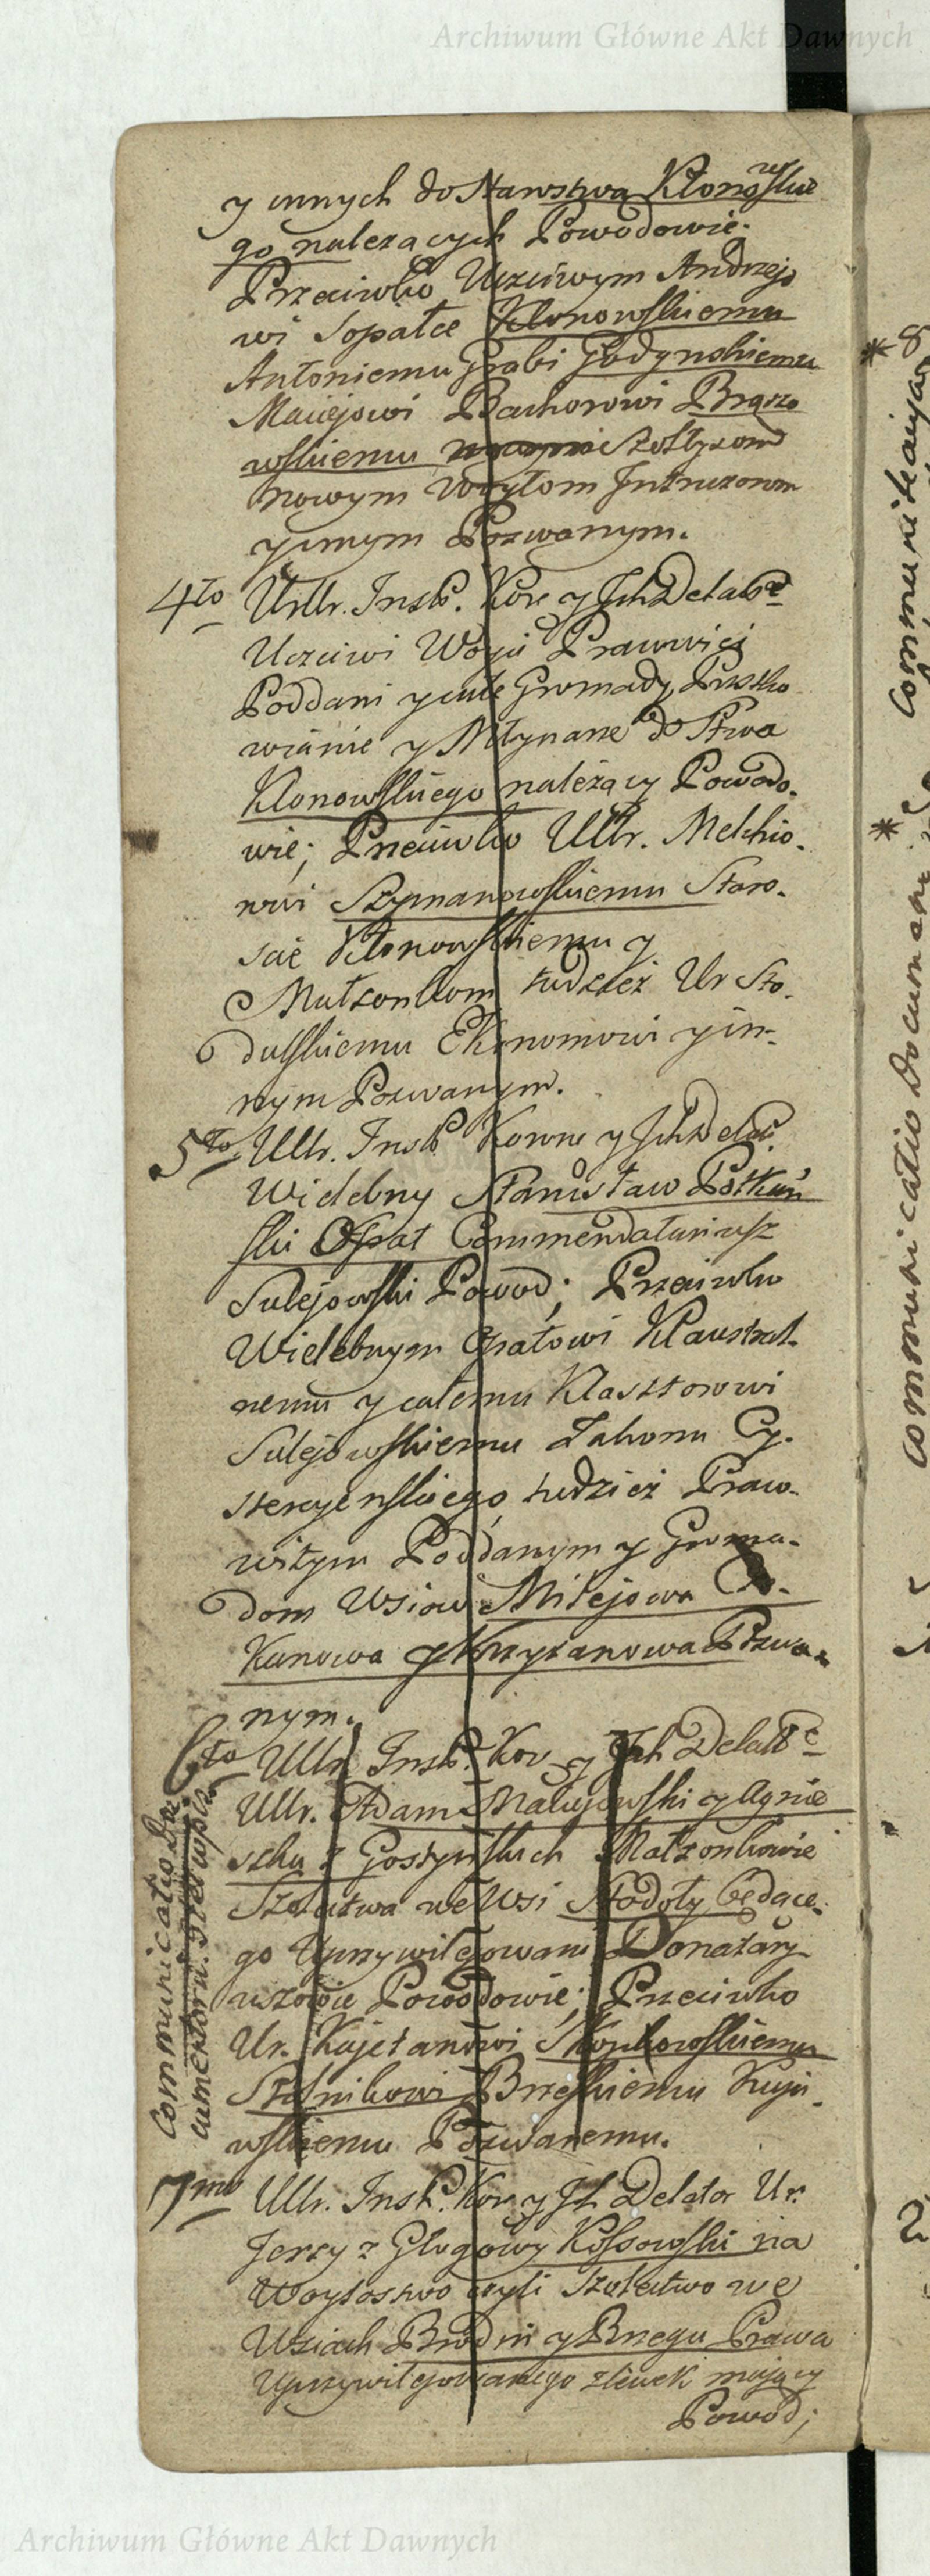 Archiwum Główne Akt Dawnych
y innych do Starostwa Kłonowskie
go nalezacych Powodowie.
Przeciwko Uczciwym Andrzejo
wi Sopałce Kłonowskiemu
Antoniemu Grabi Godynskiemu
Maciejowi Bachorowi Brąszo
wskiemu Szołtysom
nowym Woytom Intruzonom
y innym Pozwanym.
4to Urllr. Inst. Kore y Ich Delatre
Uczciwi Woyci Prawnici
Poddani y całe Gromady Pustko
wianie y Młynarze do Stwa
Klonowskiego należący Powodo.
wie; Przeciwko Ullr. Melchio.
rowi Szymanowskiemu Staro.
scie Klonowskiemu y
Małzonkom tudziez Ur Sto.
dulskiemu Ekonomowi y in-
nym Pozwanym.
5to Ullr. Inst. Koronne y Ich Delat.
Wielebny Stanisław Potkań
ski Opat Commendatariusz
Sulejowski Powod; Przeciwko
Wielebnym Opatowi Klaustral.
nemu y całemu Klasztorowi
Sulejowskiemu Zakonu Cy.
stercyenskiego tudziez Praw.
witym Poddanym y Groma.
dom Wsiow Milejowa
Kunowa y Krzyzanowa Pozwa.
nym.
6to Ullr. Inst. Kor y Ich Delatre
Ullr. Adam Malujowski y Agnie
szka z Gostyńskich Małzonkowie
Szołectwa we Wsi Stodoły będące.
go Uprzywilejowani Donatary
uszowie Powodowie; Przeciwko
Ur. Kajetanowi Skonkowskiemu
Stolnikowi Brzeskiemu Kuja.
wskiemu Pozwanemu.
Communicatio Do
cumentoru.
7mo Ullr. Inst. Kor y Ich Delator Ur.
Jerzy z Głogowy Kossowski na
Woytostwo czyli Szołectwo we
Wsiach Brodni y Brzegu Prawa
Uprzywilejowanego zlewek maiący
Powod;
* 8
*
Communicatio Documentor
2
Archiwum Główne Akt Dawnych